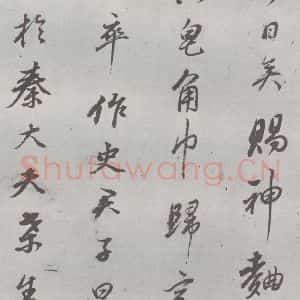 日矣賜神麯
角巾歸
卒作史天子曰
於秦大夫
Shufawang.CN